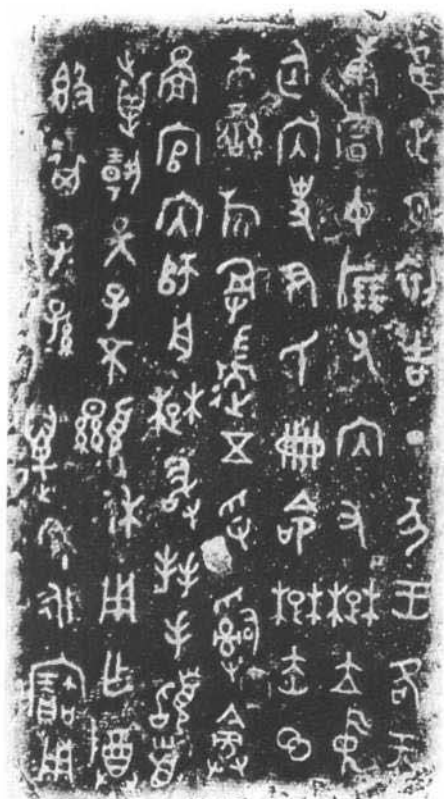 隹正月初吉丁亥王各于
康宮中倗父內又楚立中
廷內史尹氏冊命楚赤
市䜌旂取遄五寽𤔲
啚官內師舟楚敢拜手𩒨首
疐揚天子不顯休用乍尊
簋其子孫萬年永寶用